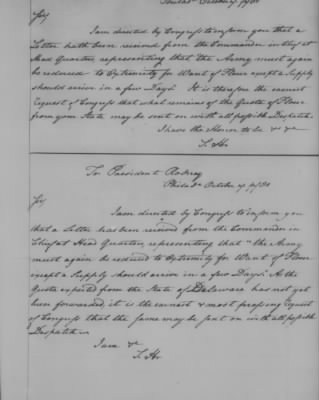 Philada October 7, 1780
Sir
I am directed by Congress to inform you that a
Letter hath been received from the Commander in Chief at
Head Quarters, representing that "the Army must again
be reduced to Extremity for Want of Flour except a Supply
should arrive in a few Days. It is therefore the earnest
Request of Congress that what remains of the Quota of Flour
from your State may be sent on with all possible Dispatch
I have the Honor to be &c &c
S. H.
To President Rodney
Philada October 7, 1780
Sir
I am directed by Congress to inform you
that a Letter has been received from the Commander in
Chief at Head Quarters, representing that "the Army
must again be reduced to Extremity for Want of Flour
except a Supply should arrive in a few Days." As the
Quota expected from the State of Delaware has not yet
been forwarded, it is the earnest & most pressing Request
of Congress that the same may be sent on with all possible
Dispatch
I am &c
S. H.